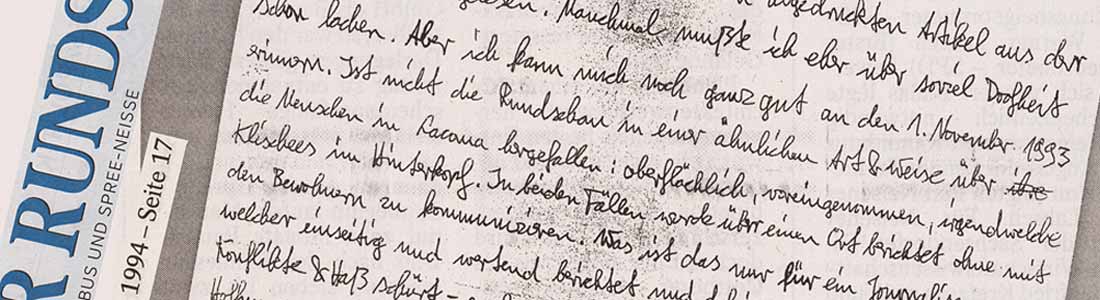 R RUNDS
BUS UND SPREE-NEISSE
1994 – Seite 17
gelesen. Manchmal mußte ich eher über soviel Doofheit
abgedruckten Artikel aus der
schon lachen. Aber ich kann mich noch ganz gut an den 1. November 1993
erinnern. Ist nicht die Rundschau in einer ähnlichen Art & Weise über ihre
die Menschen in Lacoma hergefallen: oberflächlich, voreingenommen, irgendwelche
Klischees im Hinterkopf. In beiden Fällen werde über einen Ort berichtet ohne mit
den Bewohnern zu kommunizieren. Was ist das nur für ein Journalis
welcher einseitig und wertend berichtet und
Konflikte & Haß schürt –